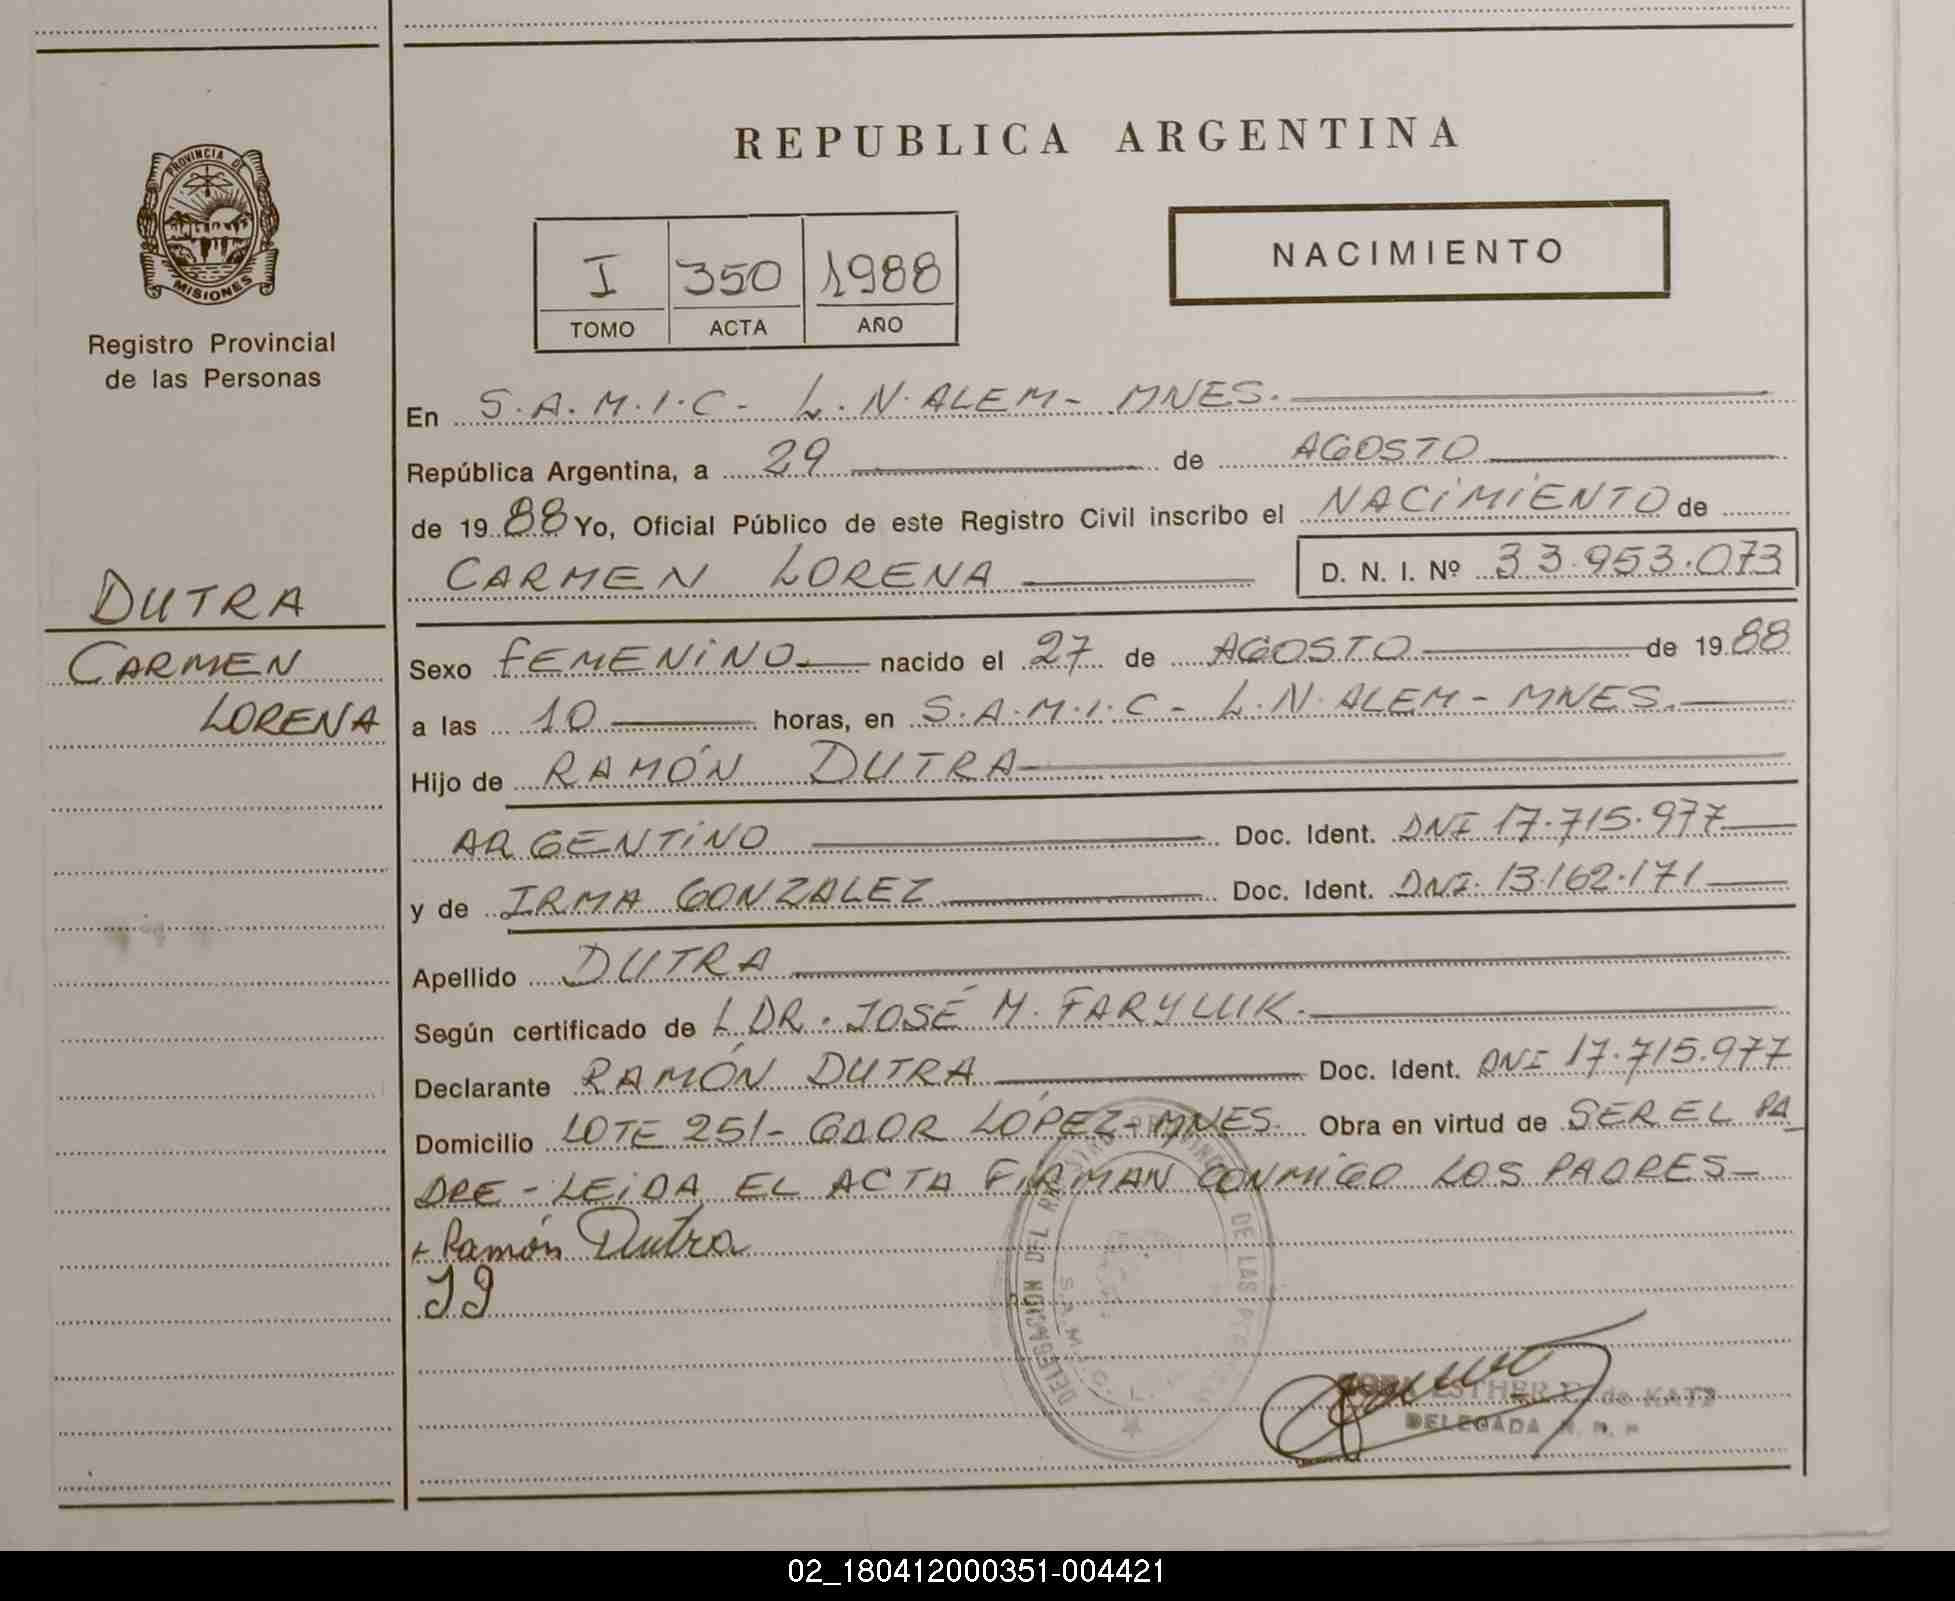 PROVINCIA DE
MISIONES
Registro Provincial
de las Personas
DUTRA
CARMEN
LORENA
REPUBLICA ARGENTINA
I 350 1988
TOMO ACTA AÑO
NACIMIENTO
En S.A.M.I.C - L.N. ALEM - MNES.
República Argentina, a 29 de AGOSTO
de 1988 Yo, Oficial Público de este Registro Civil inscribo el NACIMIENTO de
CARMEN LORENA D. N. I. Nº 33.953.073
Sexo FEMENINO nacido el 27 de AGOSTO de 1988
a las 10 horas, en S.A.M.I.C - L.N. ALEM - MNES.
Hijo de RAMÓN DUTRA
ARGENTINO Doc. Ident. DNI 17.715.977
y de IRMA GONZALEZ Doc. Ident. DNI. 13.162.171
Apellido DUTRA
Según certificado de L DR. JOSÉ M. FARYLUK.
Declarante RAMÓN DUTRA Doc. Ident. DNI 17.715.977
Domicilio LOTE 251 - GDOR LÓPEZ - MNES. Obra en virtud de SER EL PA
DRE - LEIDA EL ACTA FIRMAN CONMIGO LOS PADRES -
Ramón Dutra
DELEGACION DEL DE LAS
ESTHER de KATZ
DELEGADA
02_180412000351-004421